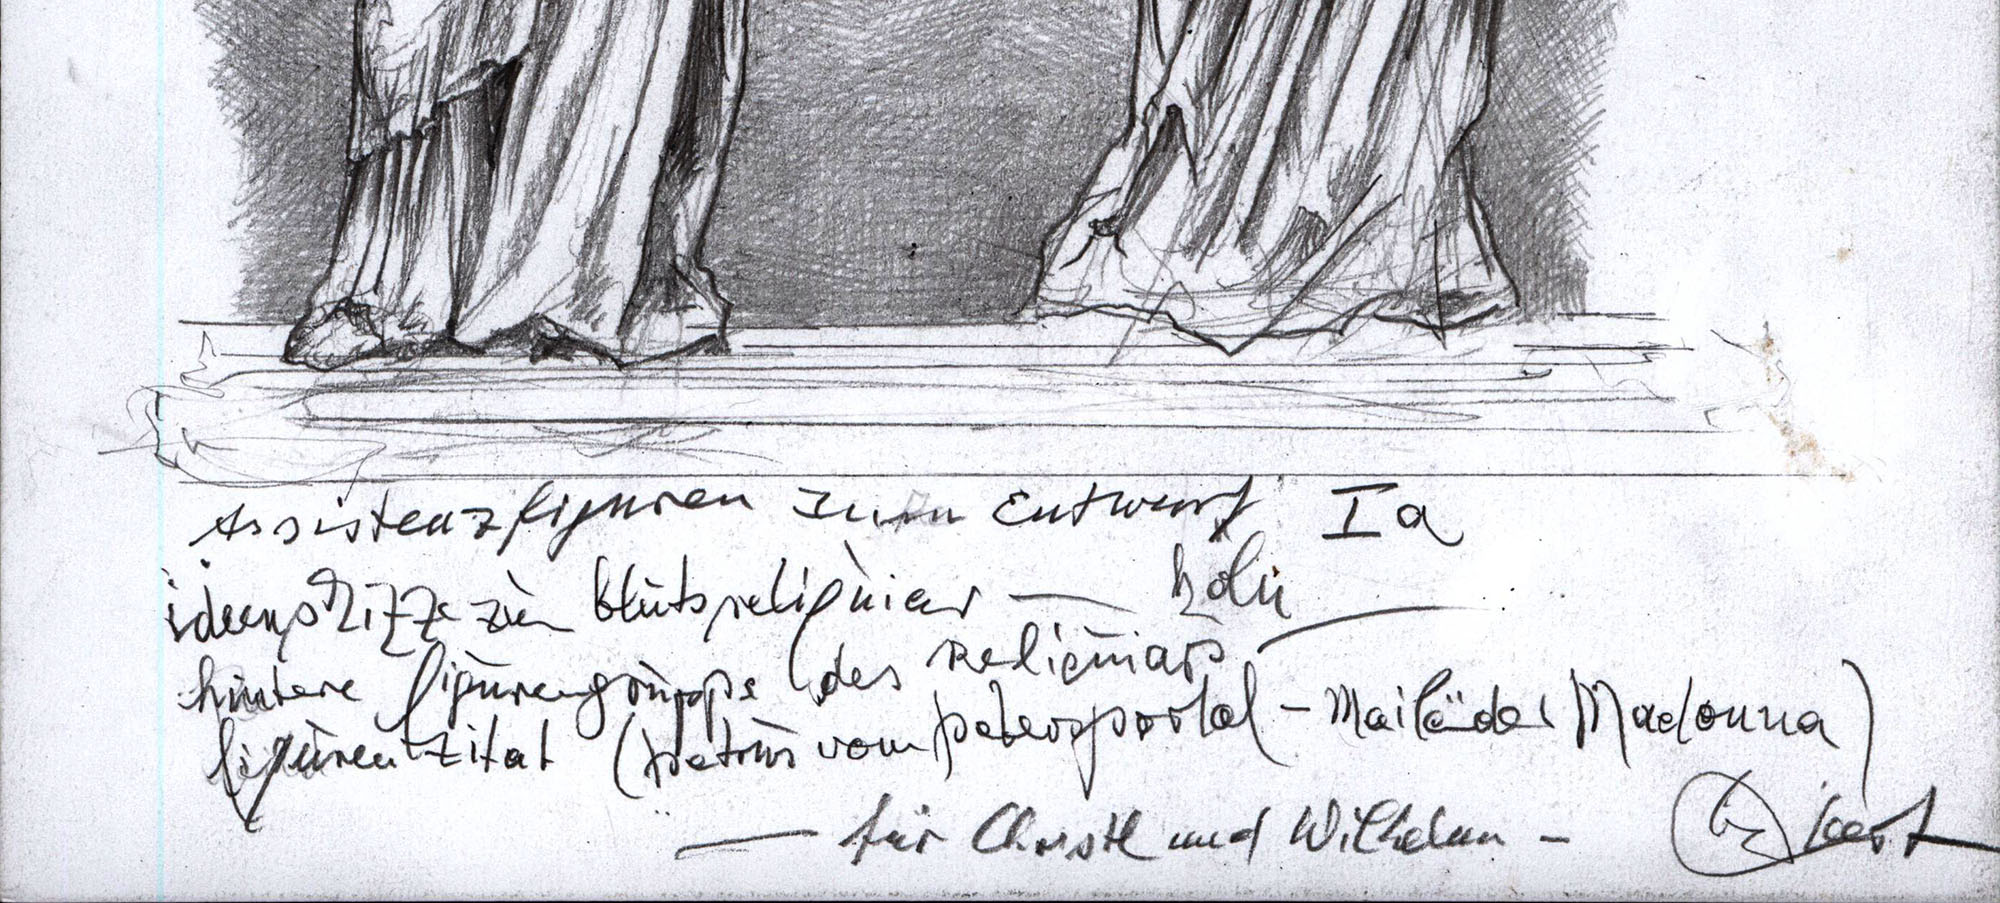 Assistenzfiguren zum Entwurf Ia
ideenskizze zum blutsreliquiar — Köln —
hintere figurengruppe des reliquiars
figurenzitat (petrus vom petersportal - Mailänder Madonna)
— für Christl und Wilhelm -